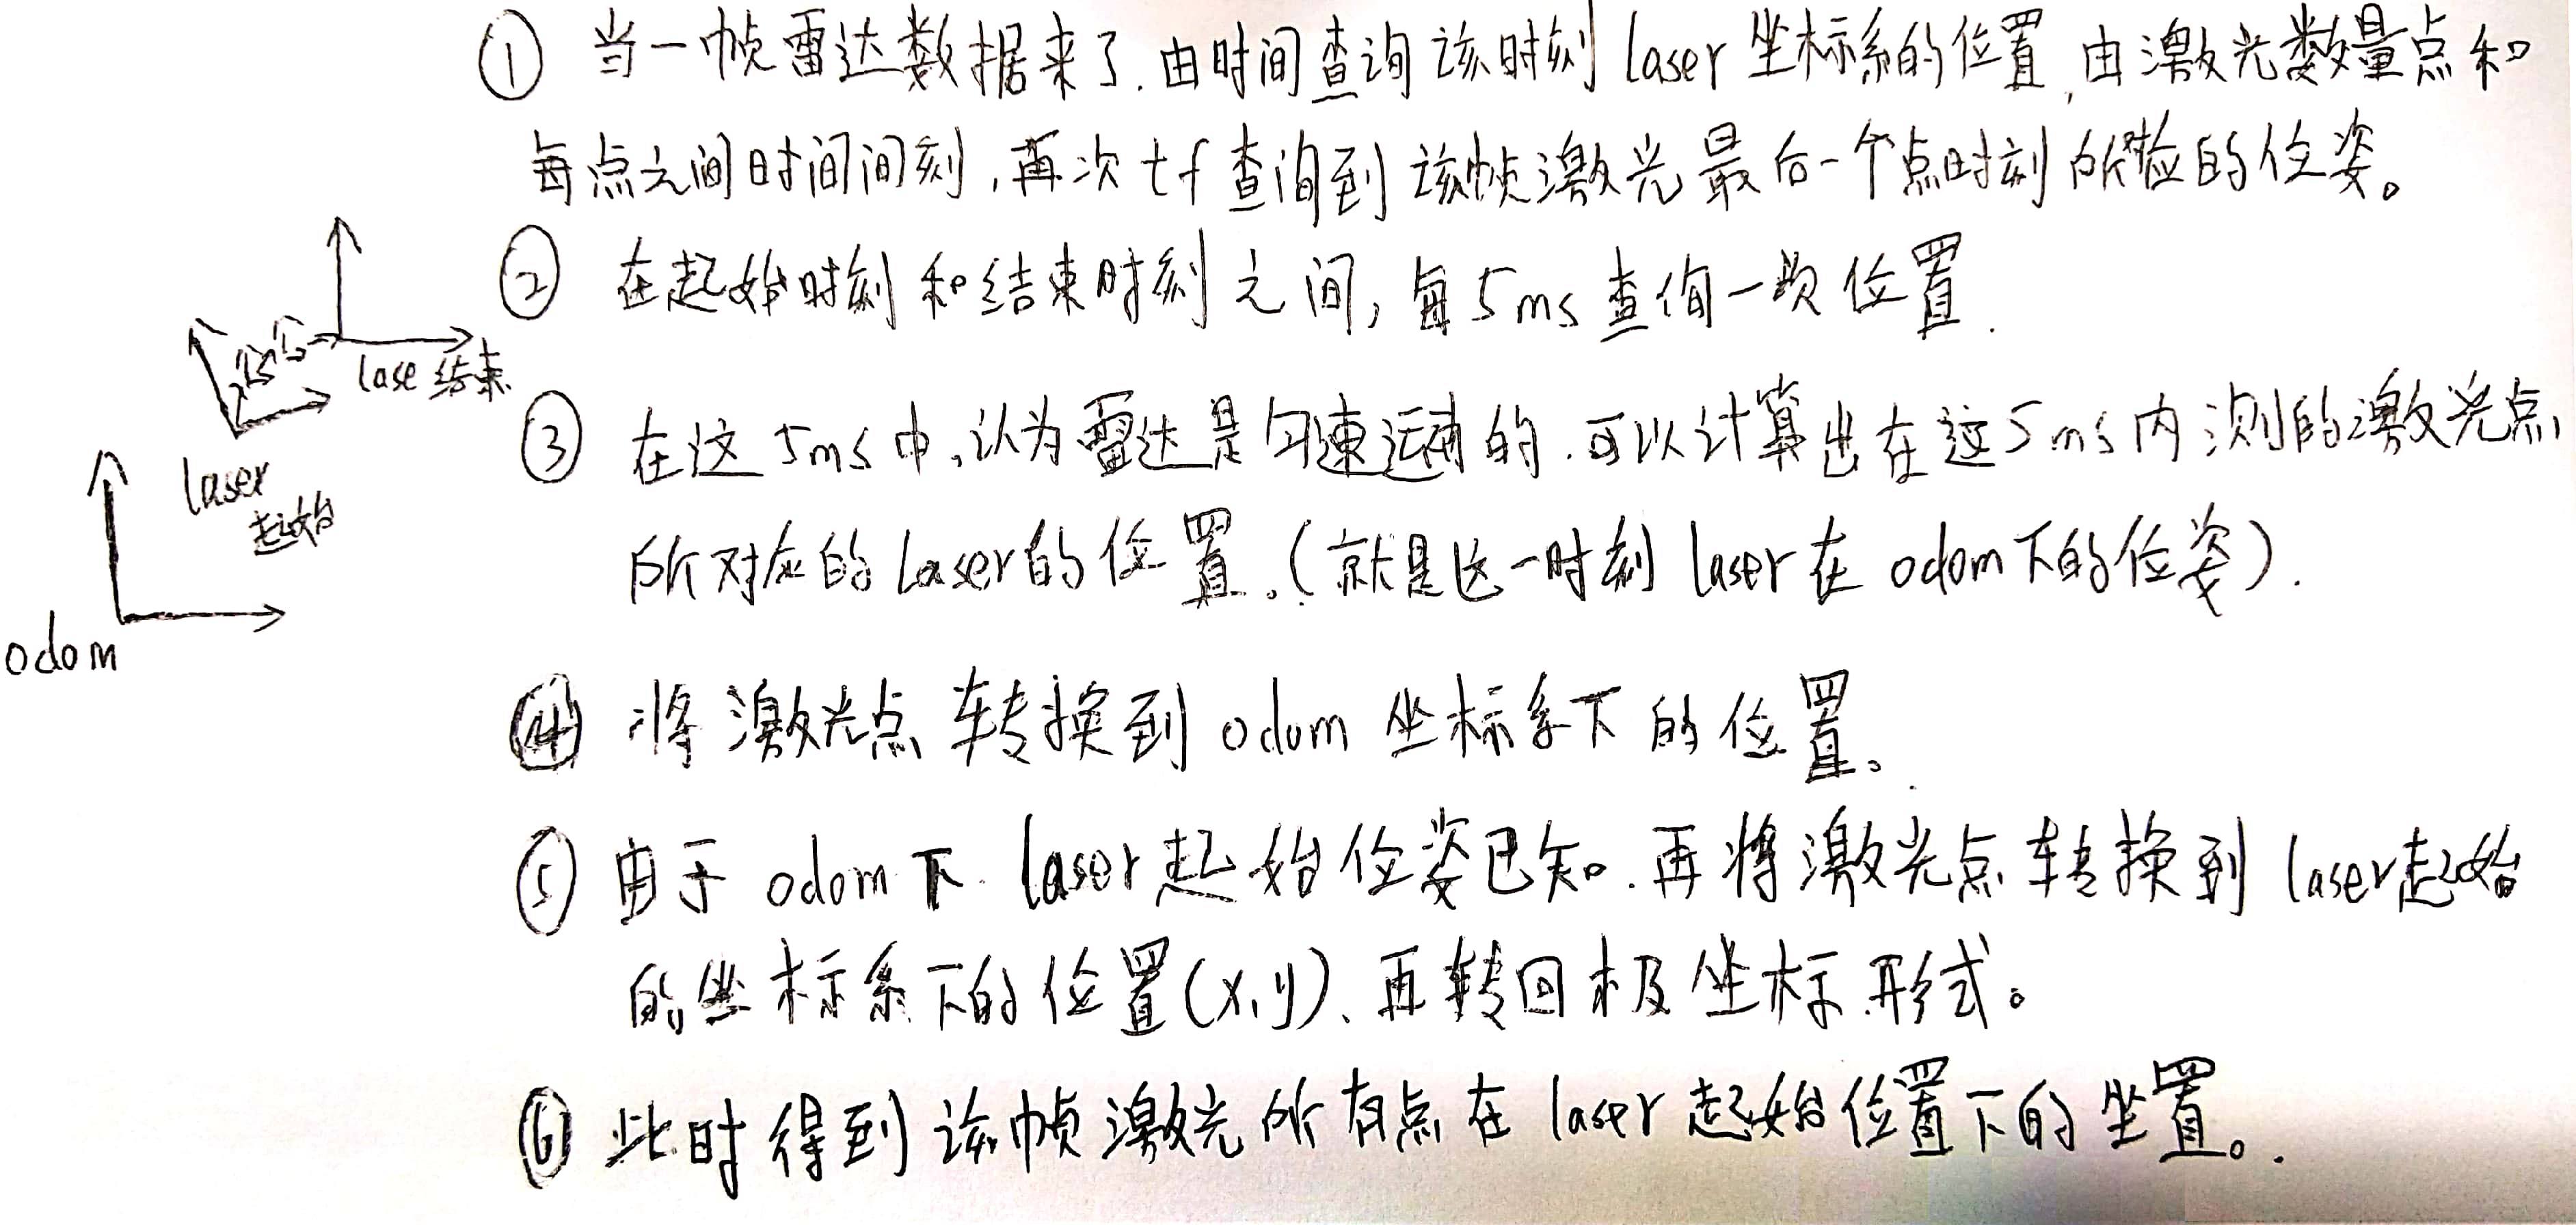 ① 当一帧雷达数据来了.由时间查询该时刻 laser 坐标系的位置,由激光数量点和
每点之间时间间刻,再次 tf 查询到该帧激光最后一个点时刻所在的位姿。
② 在起始时刻和结束时刻之间,每5ms查询一次位置.
lase 结束.
③ 在这 5ms 中,认为雷达是匀速运动的.可以计算出在这5ms内测的激光点
laser
起始
所对应的laser的位置。(就是这一时刻 laser 在 odom下的位姿).
odom
④ 将激光点转换到 odom 坐标系下的位置。
⑤ 由于 odom下 laser起始位姿已知.再将激光点转换到 laser起始
的坐标系下的位置(x,y)、再转回极坐标形式。
⑥ 此时得到该帧激光所有点在 laser 起始位置下的坐置。